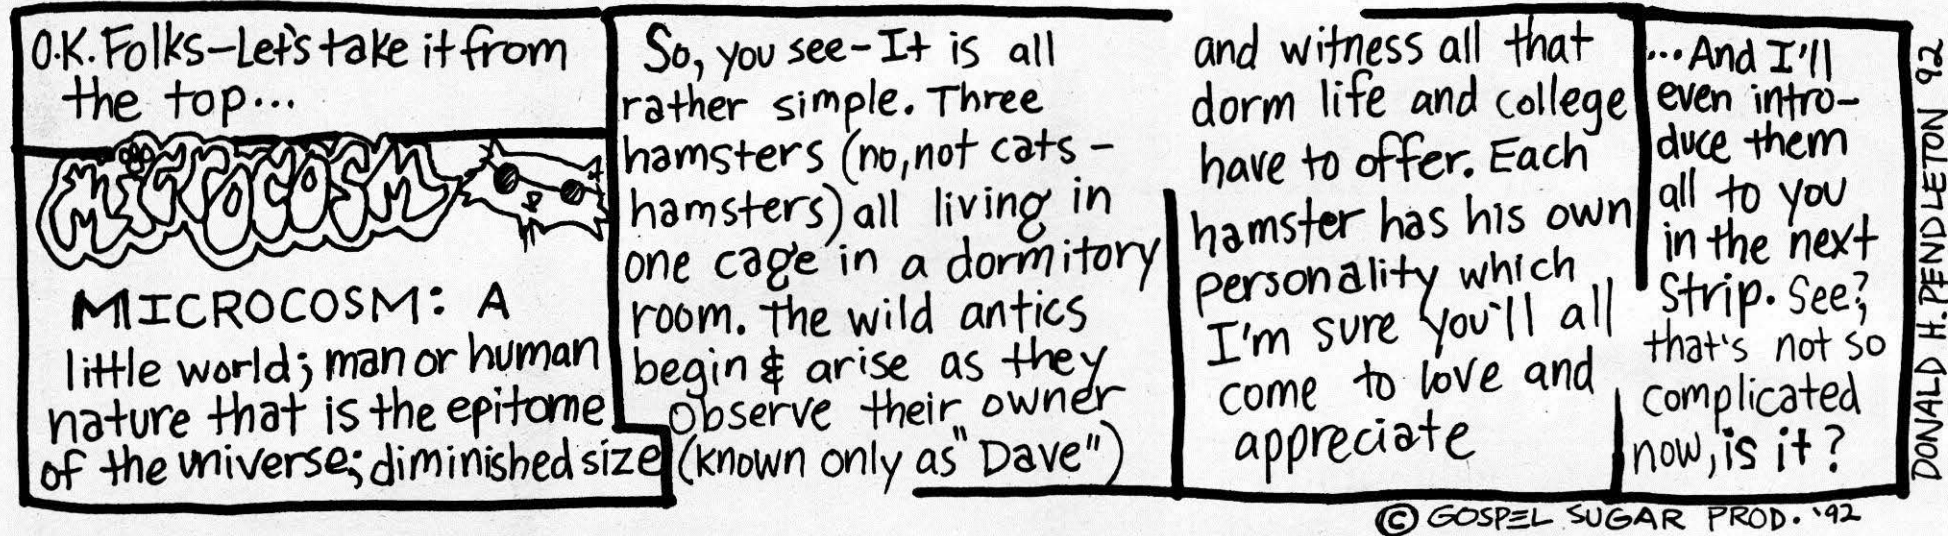 O.K. Folks-Let's take it from
the top...
MICROCOSM
MICROCOSM: A
little world; man or human
nature that is the epitome
of the universe; diminished size
So, you see-It is all
rather simple. Three
hamsters (no, not cats-
hamsters) all living in
one cage in a dormitory
room. the wild antics
begin & arise as they
observe their owner
(known only as "Dave")
and witness all that
dorm life and college
have to offer. Each
hamster has his own
personality which
I'm sure you'll all
come to love and
appreciate
...And I'll
even intro-
duce them
all to you
in the next
Strip. See?
that's not so
complicated
now, is it?
DONALD H. PENDLETON 92
© GOSPEL SUGAR PROD. '92